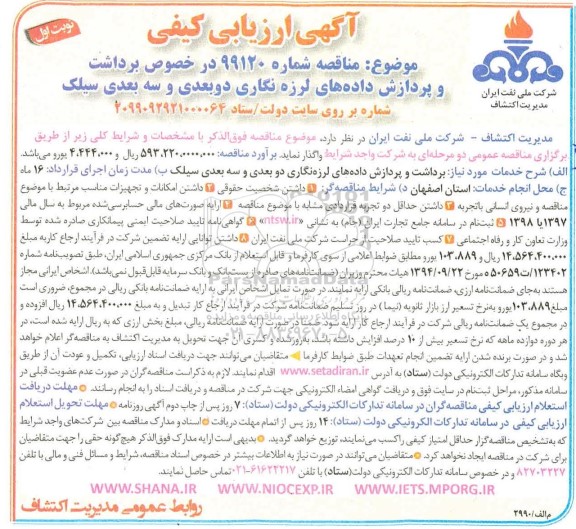 نوبت اول
آگهی ارزیابی کیفی
شرکت ملی نفت ایران
مدیریت اکتشاف
موضوع: مناقصه شماره ۹۹۱۲۰ در خصوص برداشت
و پردازش داده‌های لرزه نگاری دوبعدی و سه بعدی سیلک
شماره بر روی سایت دولت/ستاد ۲۰۹۹۰۹۲۹۲۱۰۰۰۰۶۴
مدیریت اکتشاف - شرکت ملی نفت ایران در نظر دارد، موضوع مناقصه فوق‌الذکر با مشخصات و شرایط کلی زیر از طریق
برگزاری مناقصه عمومی دو مرحله‌ای به شرکت واجد شرایط واگذار نماید. برآورد مناقصه: ۵۹۳.۲۲۰.۰۰۰.۰۰۰ ریال و ۴.۴۴۴.۰۰۰ یورو می‌باشد.
الف) شرح خدمات مورد نیاز: برداشت و پردازش داده‌های لرزه‌نگاری دو بعدی و سه بعدی سیلک ب) مدت زمان اجرای قرارداد: ۱۶ ماه
ج) محل انجام خدمات: استان اصفهان د) شرایط مناقصه‌گر: ۱ داشتن شخصیت حقوقی ۲ داشتن امکانات و تجهیزات مناسب مرتبط با موضوع
مناقصه و نیروی انسانی باتجربه ۳ داشتن حداقل دو تجربه قراردادی مشابه با موضوع مناقصه ۴ ارایه صورت‌های مالی حسابرسی‌شده مربوط به سال مالی
۱۳۹۷ یا ۱۳۹۸ ۵ ثبت‌نام در سامانه جامع تجارت ایران (جام) به نشانی «ntsw.ir» ۶ گواهی‌نامه تایید صلاحیت ایمنی پیمانکاری صادره شده توسط
وزارت تعاون کار و رفاه اجتماعی ۷ کسب تایید صلاحیت از حراست شرکت ملی نفت ایران ۸ داشتن توانایی ارایه تضمین شرکت در فرآیند ارجاع کار به مبلغ
۱۴.۵۶۴.۴۰۰.۰۰۰ ریال و ۱۰۳.۸۸۹ یورو مطابق ضوابط اعلامی از سوی کارفرما و قابل استعلام از بانک مرکزی جمهوری اسلامی ایران، طبق تصویب‌نامه شماره
۱۲۳۴۰۲/ت۵۰۶۵۹ه مورخ ۱۳۹۴/۰۹/۲۲ هیات محترم وزیران (ضمانت‌نامه‌های صادره از پست‌بانک و بانک سرمایه قابل‌قبول نمی‌باشد). اشخاص ایرانی مجاز
هستند به‌جای ضمانت‌نامه ارزی، ضمانت‌نامه ریالی بانکی ارایه نمایند. در صورت تمایل اشخاص ایرانی به ارایه ضمانت‌نامه بانکی ریالی در مجموع، ضروری است
۱۰۳.۸۸۹ یورو به‌نرخ تسعیر ارز بازار ثانویه (نیما) در روز تسلیم ضمانت‌نامه شرکت در فرآیند ارجاع کار تبدیل و به مبلغ ۱۴.۵۶۴.۴۰۰.۰۰۰ ریال افزوده و
در مجموع یک ضمانت‌نامه ریالی شرکت در فرآیند ارجاع کار ارایه شود. ضمنا در صورت ارایه ضمانت‌نامه ریالی، مبلغ بخش ارزی که به ریال ارایه شده است، در
هر دوره دوازده ماهه که نرخ تسعیر بیش از ۱۰ درصد افزایش داشته باشد، به‌روز شده و آن جهت تحویل به مدیریت اکتشاف به مناقصه‌گر اعلام خواهد
شد و در صورت برنده شدن ارایه تضمین انجام تعهدات طبق ضوابط کارفرما ◆ متقاضیان می‌توانند جهت دریافت اسناد ارزیابی، تکمیل و عودت آن از طریق
وبگاه سامانه تدارکات الکترونیکی دولت (ستاد) به آدرس www.setadiran.ir اقدام نمایند. لازم به ذکر است مناقصه‌گران در صورت عدم عضویت قبلی در
سامانه مذکور، مراحل ثبت‌نام در سایت فوق و دریافت گواهی امضاء الکترونیکی جهت شرکت در مناقصه و دریافت اسناد را به انجام رسانند. ◆ مهلت دریافت
استعلام ارزیابی کیفی مناقصه‌گران در سامانه تدارکات الکترونیکی دولت (ستاد): ۷ روز پس از چاپ دوم آگهی روزنامه ◆ مهلت تحویل استعلام
ارزیابی کیفی در سامانه تدارکات الکترونیکی دولت (ستاد): ۱۴ روز پس از اتمام مهلت دریافت ◆ اسناد و مدارک مناقصه بین شرکت‌های واجد شرایط
که به‌تشخیص مناقصه‌گزار حداقل امتیاز کیفی را کسب می‌نمایند، توزیع خواهد گردید. ◆ بدیهی است ارایه مدارک فوق‌الذکر هیچ‌گونه حقی را جهت متقاضیان
برای شرکت در مناقصه ایجاد نخواهد کرد. ◆ متقاضیان می‌توانند در صورت نیاز به اطلاعات بیشتر در خصوص اسناد مناقصه، شرایط و مسائل فنی و مالی با تلفن
۸۲۷۰۳۲۲۷ و در خصوص سامانه تدارکات الکترونیکی دولت (ستاد) با تلفن ۶۱۶۲۲۲۱۷-۰۲۱ تماس حاصل نمایند.
WWW.SHANA.IR WWW.NIOCEXP.IR WWW.IETS.MPORG.IR
روابط عمومی مدیریت اکتشاف
م‌الف/۲۹۹۰